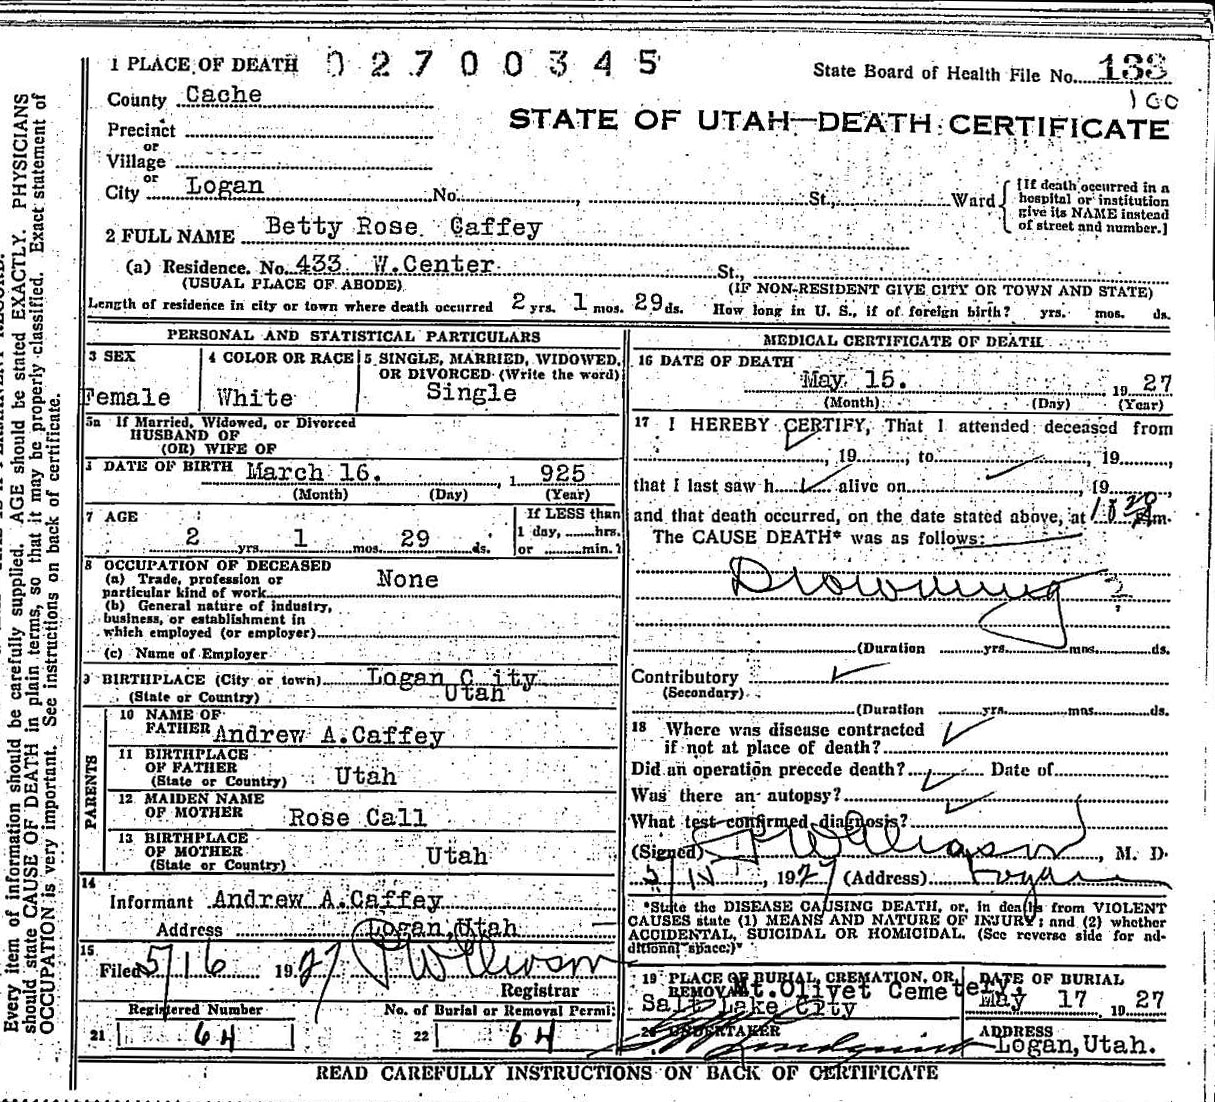 1 PLACE OF DEATH 02700345
State Board of Health File No. 133
100
County Cache
STATE OF UTAH—DEATH CERTIFICATE
Precinct
or
Village
or
City Logan No. , St., Ward
[If death occurred in a
hospital or institution
give its NAME instead
of street and number.]
2 FULL NAME Betty Rose Caffey
(a) Residence. No. 433 W.Center St.,
(USUAL PLACE OF ABODE) (IF NON-RESIDENT GIVE CITY OR TOWN AND STATE)
Length of residence in city or town where death occurred 2 yrs. 1 mos. 29 ds. How long in U. S., if of foreign birth? yrs. mos. ds.
PERSONAL AND STATISTICAL PARTICULARS
3 SEX
Female
4 COLOR OR RACE
White
5 SINGLE, MARRIED, WIDOWED,
OR DIVORCED (Write the word)
Single
5a If Married, Widowed, or Divorced
HUSBAND OF
(OR) WIFE OF
DATE OF BIRTH March 16. , 1 925
(Month) (Day) (Year)
7 AGE
2 yrs. 1 mos. 29 ds.
If LESS than
1 day, hrs.
or min.
8 OCCUPATION OF DECEASED
(a) Trade, profession or
particular kind of work None
(b) General nature of industry,
business, or establishment in
which employed (or employer)
(c) Name of Employer
9 BIRTHPLACE (City or town) Logan C ity
(State or Country) Utah
PARENTS
10 NAME OF
FATHER Andrew A.Caffey
11 BIRTHPLACE
OF FATHER
(State or Country) Utah
12 MAIDEN NAME
OF MOTHER Rose Call
13 BIRTHPLACE
OF MOTHER
(State or Country) Utah
14
Informant Andrew A.Caffey
Address Logan,Utah
15
Filed 5/16 1927
Registrar
Registered Number No. of Burial or Removal Permit
21 64 22 64
MEDICAL CERTIFICATE OF DEATH
16 DATE OF DEATH
May 15. 19 27
(Month) (Day) (Year)
17 I HEREBY CERTIFY, That I attended deceased from
, 19 , to , 19 ,
that I last saw h alive on , 19 ,
and that death occurred, on the date stated above, at m.
The CAUSE DEATH* was as follows:
Drowning
(Duration yrs. mos. ds.
Contributory
(Secondary)
(Duration yrs. mos. ds.
18 Where was disease contracted
if not at place of death?
Did an operation precede death? Date of
Was there an autopsy?
What test confirmed diagnosis?
(Signed) , M. D.
, 1927 (Address) Logan
*State the DISEASE CAUSING DEATH, or, in deaths from VIOLENT
CAUSES state (1) MEANS AND NATURE OF INJURY; and (2) whether
ACCIDENTAL, SUICIDAL OR HOMICIDAL. (See reverse side for ad-
ditional space.)*
19 PLACE OF BURIAL, CREMATION, OR
REMOVAL Mt.Olivet Cemetery
Salt Lake City
DATE OF BURIAL
May 17 19 27
20 UNDERTAKER
ADDRESS
Logan,Utah.
READ CAREFULLY INSTRUCTIONS ON BACK OF CERTIFICATE
Every item of information should be carefully supplied. AGE should be stated EXACTLY. PHYSICIANS
should state CAUSE OF DEATH in plain terms, so that it may be properly classified. Exact statement of
OCCUPATION is very important. See instructions on back of certificate.